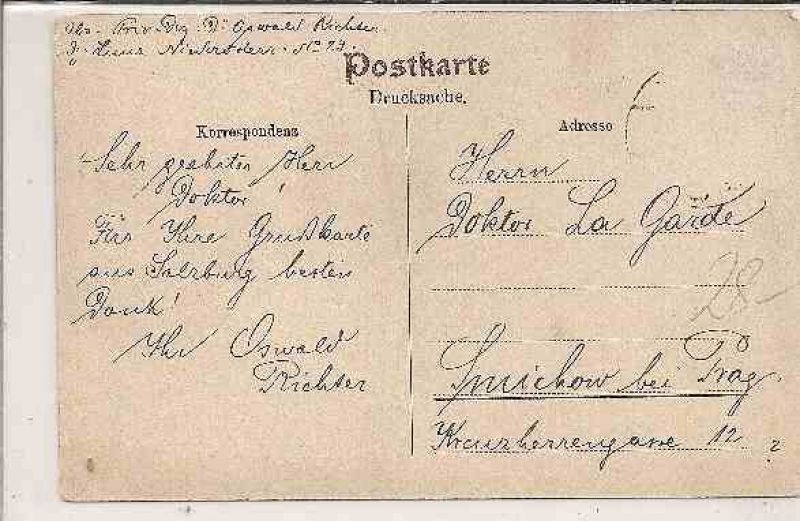 Oswald Richter
Postkarte
Drucksache.
Korrespondenz
Sehr geehrter Herr
Doktor!
Für Ihre Grußkarte
aus Salzburg besten
Dank!
Ihr Oswald
Richter
Adresse
Herrn
Doktor La Garde
28-
Smichow bei Prag.
Kreuzherrengasse 12